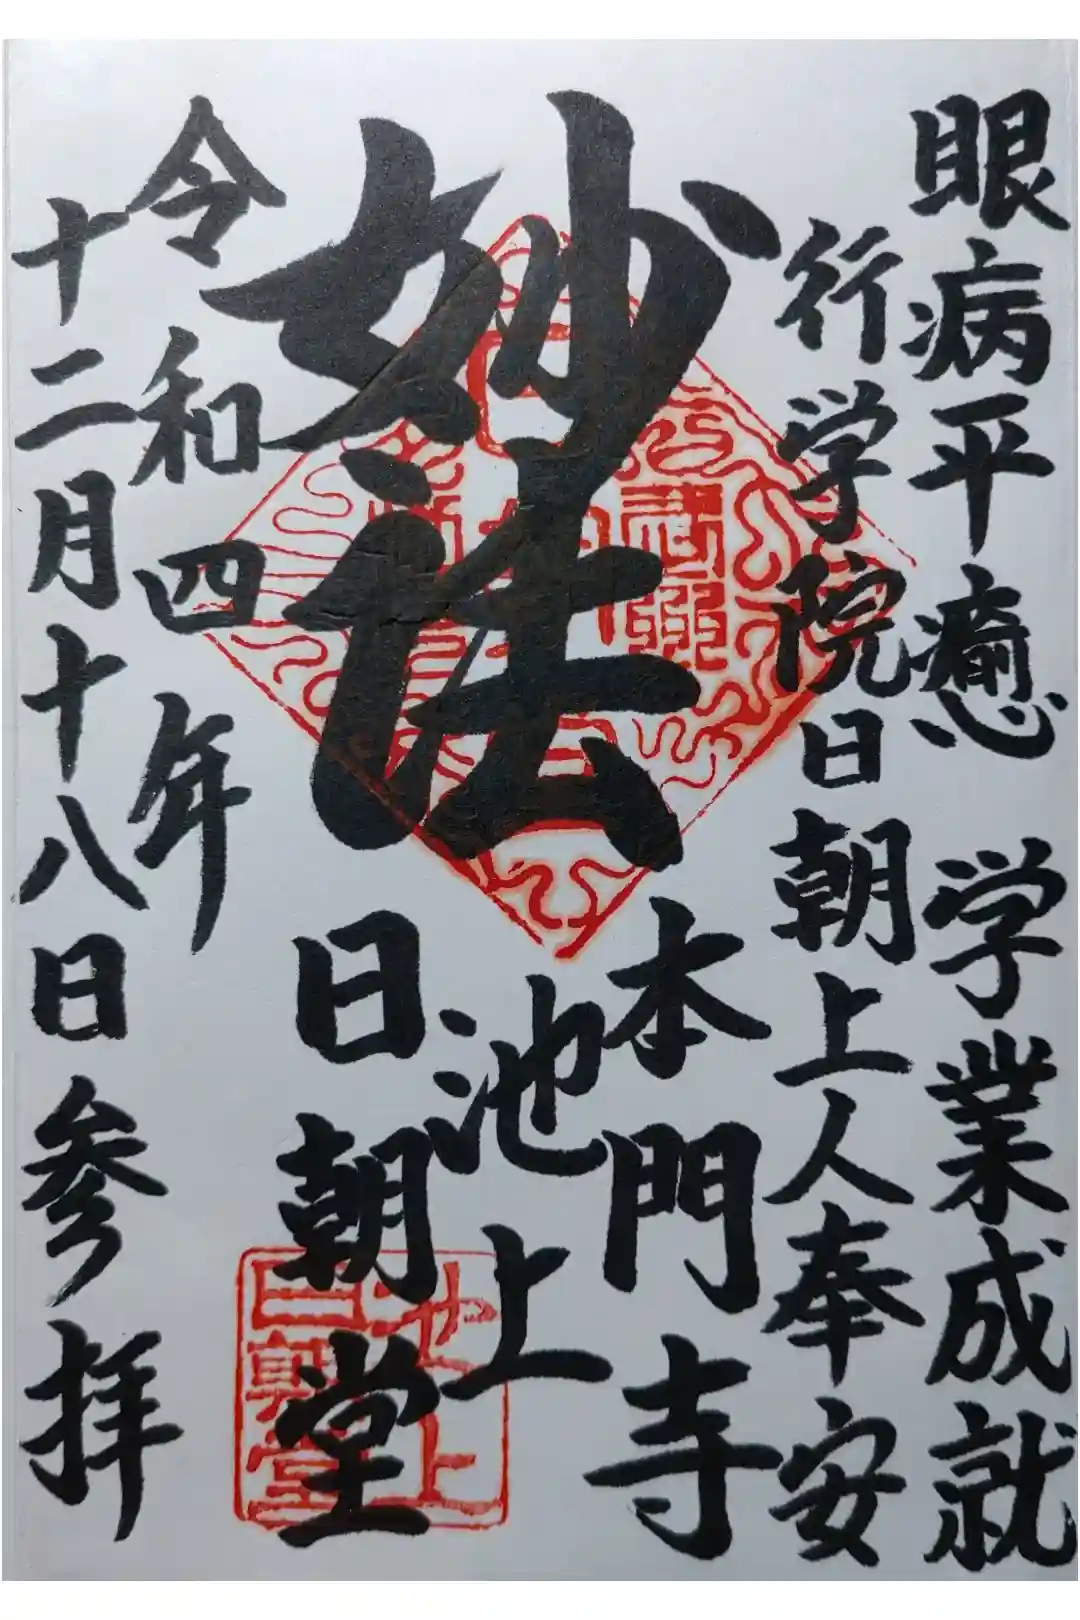 眼病平癒 学業成就
行学院日朝上人奉安
妙法
本門寺
池上
日朝堂
令和四年
十二月十八日参拝
池上
日朝堂